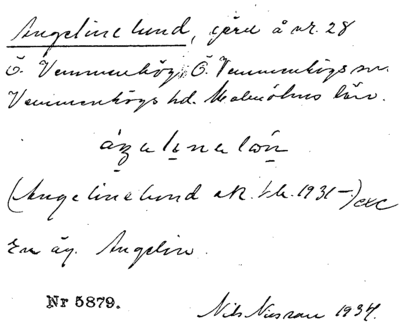 Angelinelund, gård å nr. 28
Ö. Vemmenhög, Ö. Vemmenhögs sn.
Vemmenhögs hd. Malmöhus län.
áŋelinelön
(Angelinelund
1931-) exc
En äg. Angelin.
Nr 5879.
Nils 1934.